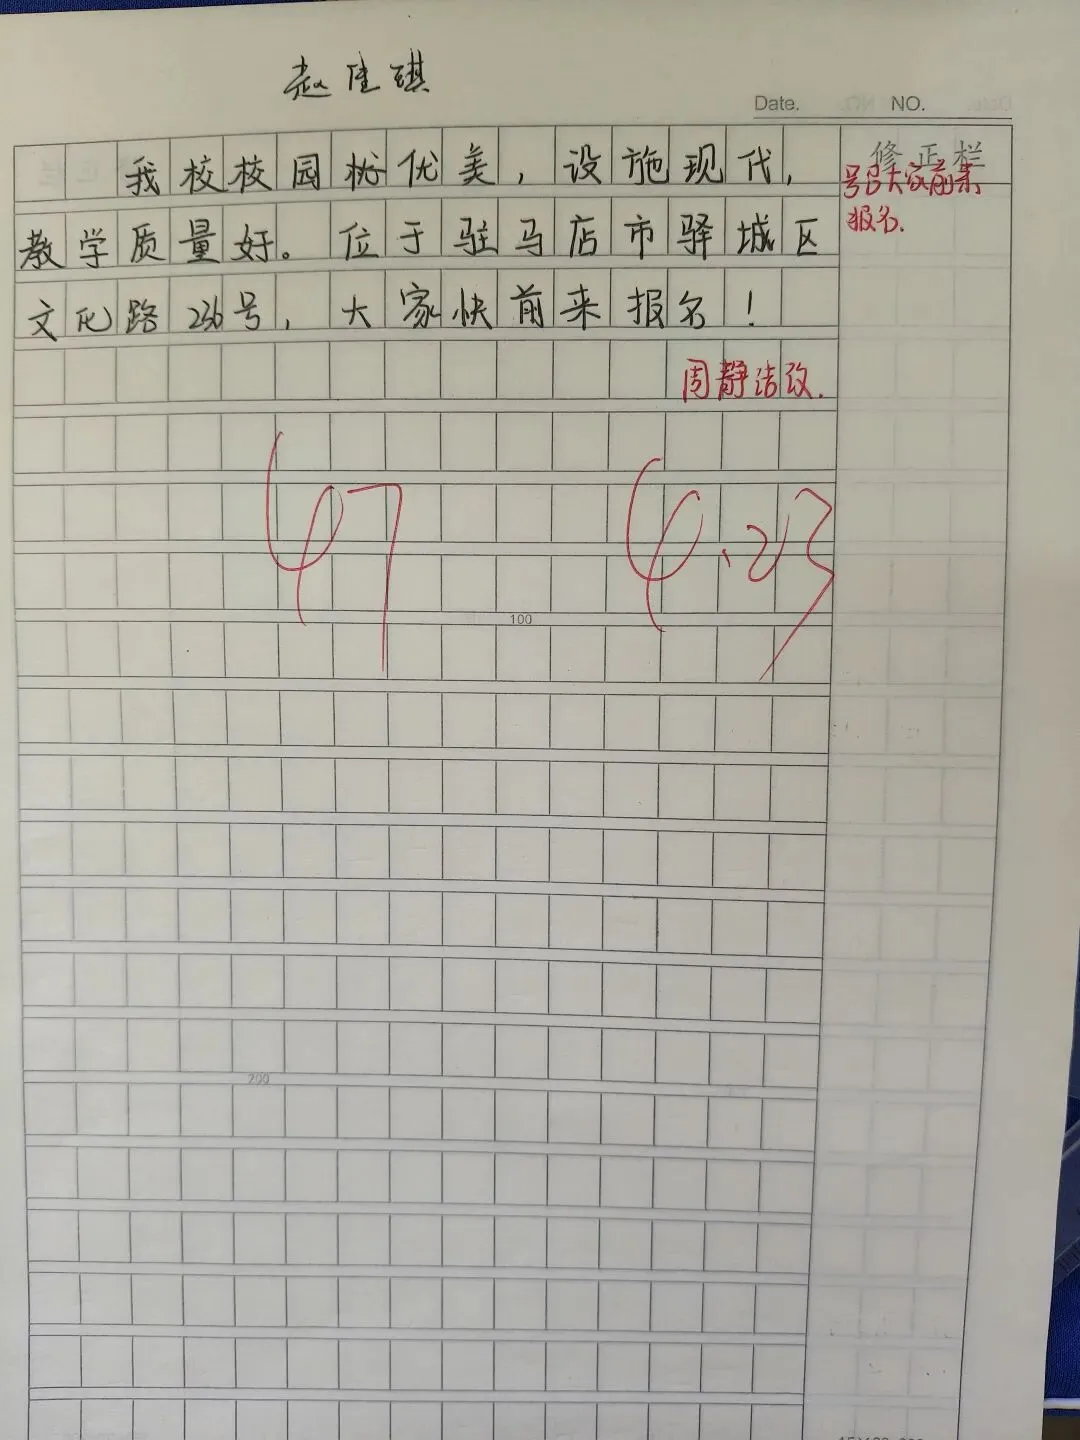 赵佳琪
Date. NO.
我校校园优美，设施现代，
修正栏
号召大家前来
报名.
教学质量好。位于驻马店市驿城区
文化路236号，大家快前来报名！
周静洁改.
97 9.23
100
200